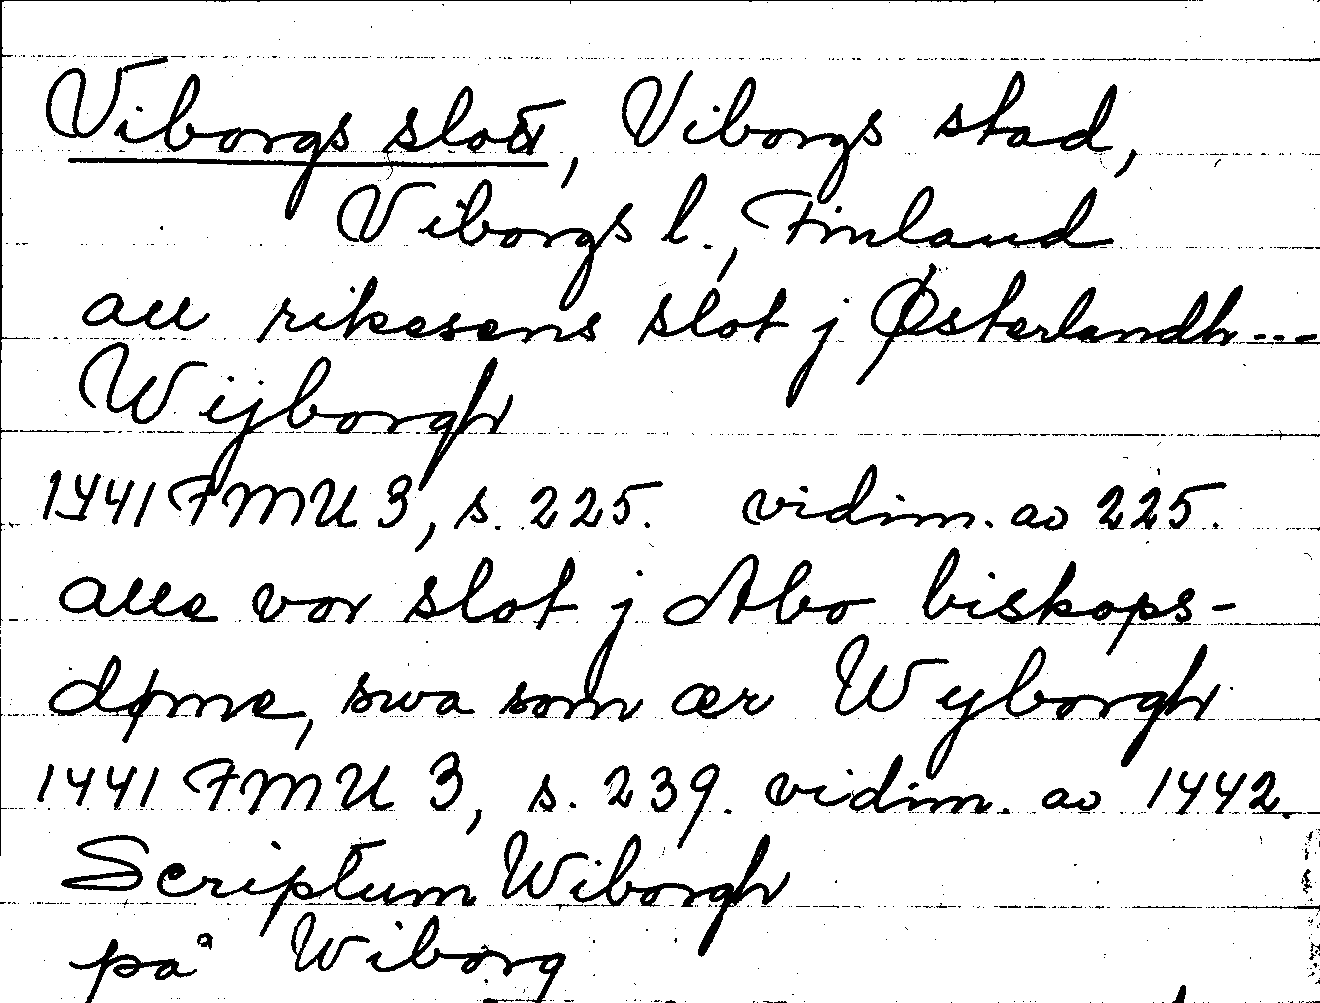 Viborgs slott, Viborgs stad,
Viborgs l., Finland
all rikesens slot j Østerlandh...
Wijborgh
1441 FMU 3, s. 225. vidim. av 225.
alle vor slot j Abo biskops-
døme, swa som ær Wyborgh
1441 FMU 3, s. 239. vidim. av 1442.
Scriptum Wiborgh
på Wiborg